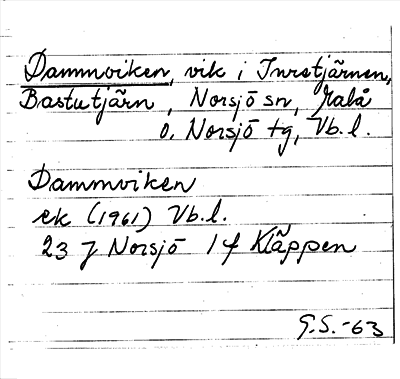 Dammviken, vik i Inretjärnen,
Bastutjärn, Norsjö sn, Malå
o. Norsjö tg, Vb.l.
Dammviken
ek (1961) Vb.l.
23 J Norsjö 1 f Kläppen
G.S.-63